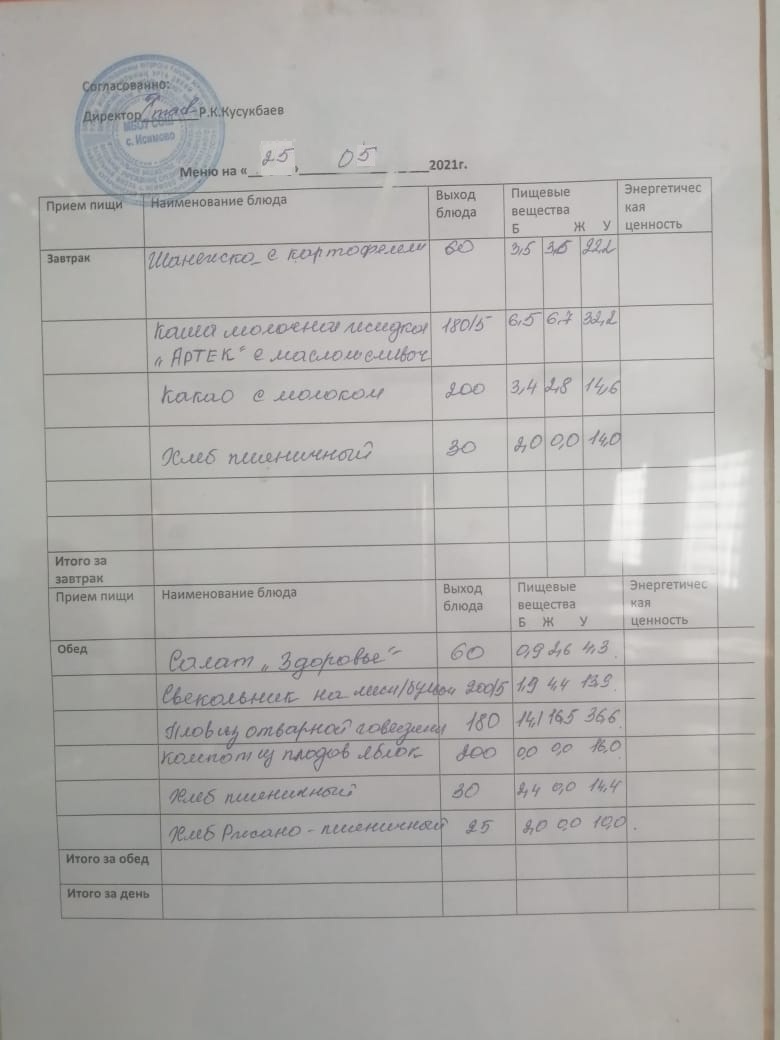 Согласованно:
Директор Р.К.Кусукбаев
МБОУ СОШ
с. Исимово
Меню на « 25 » 05 2021г.
Прием пищи Наименование блюда Выход блюда Пищевые вещества Б Ж У Энергетичес кая ценность
Завтрак с картофелем 60 3,5 3,5 22,2
Каша молочная жидкая 180/5 6,5 6,7 32,2
„АРТЕК“ с маслом сливоч
Какао с молоком 200 3,4 2,8 14,6
Хлеб пшеничный 30 2,0 0,0 14,0
Итого за завтрак
Прием пищи Наименование блюда Выход блюда Пищевые вещества Б Ж У Энергетичес кая ценность
Обед Салат „Здоровье“ 60 0,9 2,6 4,3
Свекольник на мясн/бульон 200/5 1,9 4,4 13,9
Плов из отварной говядины 180 14,1 16,5 36,6
Компот из плодов яблок 200 0,0 0,0 16,0
Хлеб пшеничный 30 2,4 0,0 14,4
Хлеб Ржано-пшеничный 25 2,0 0,0 10,0
Итого за обед
Итого за день